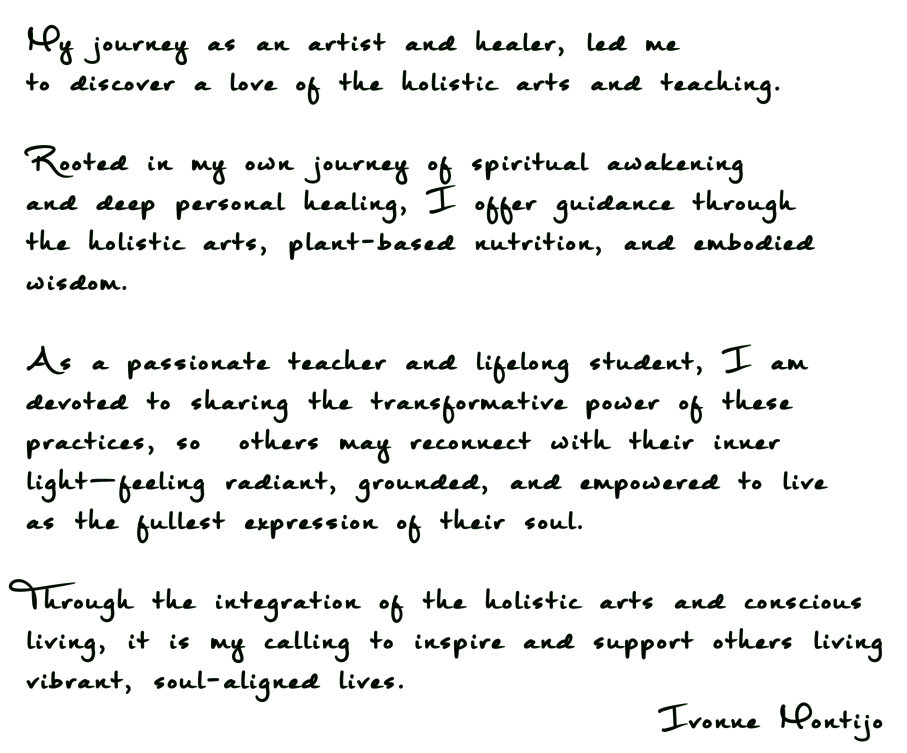 My journey as an artist and healer, led me
to discover a love of the holistic arts and teaching.
Rooted in my own journey of spiritual awakening
and deep personal healing, I offer guidance through
the holistic arts, plant-based nutrition, and embodied
wisdom.
As a passionate teacher and lifelong student, I am
devoted to sharing the transformative power of these
practices, so others may reconnect with their inner
light—feeling radiant, grounded, and empowered to live
as the fullest expression of their soul.
Through the integration of the holistic arts and conscious
living, it is my calling to inspire and support others living
vibrant, soul-aligned lives.
Ivonne Montijo